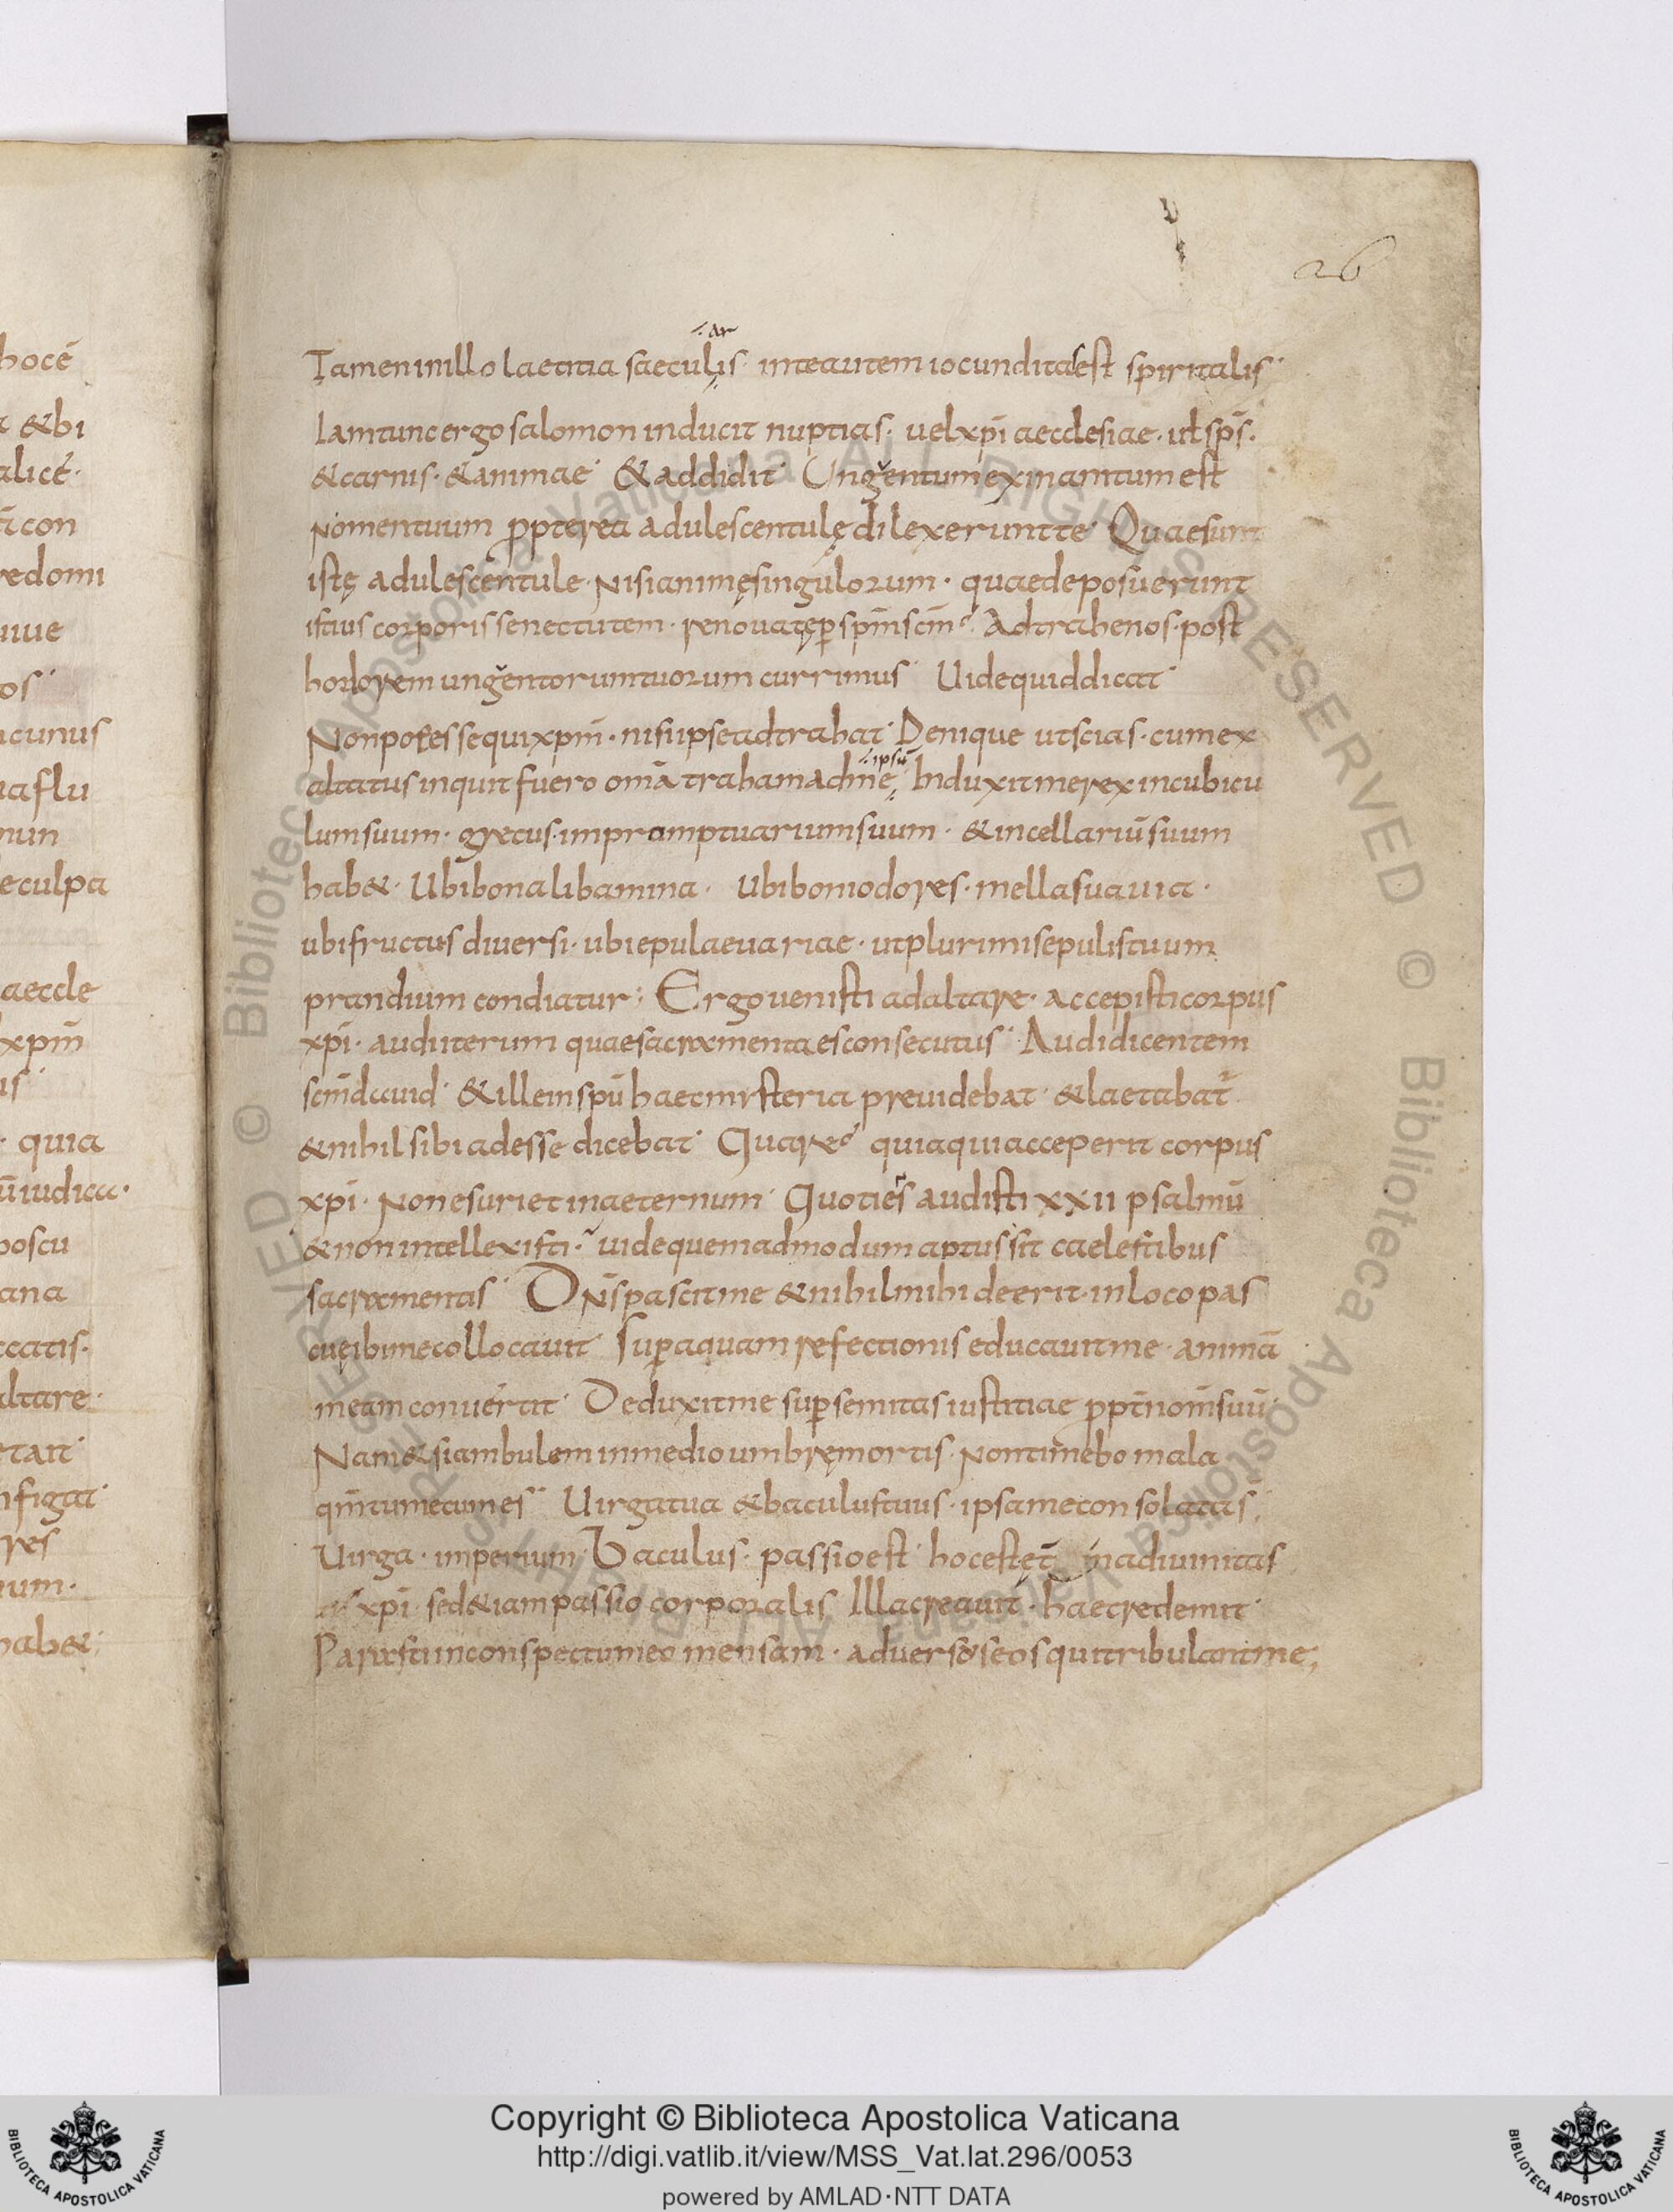 hocē
& bi
alicē·
con
redomi
uiue
os
cunus
aflu
nun
eculpa
aeccle
xpm̄
is
· quia
iudica·
poscu
ana
ccatis·
altare·
tait
figat
res
num·
hab&
26
·ar
Tamen in illo laetitia saeculis· in te autem iocunditas est spiritalis·
Iam tunc ergo salomon inducit nuptias· uel xp̄i aecclesiae· ul sp̄s·
& carnis· & animae· & addidit· Ungentum exinanitum est
nomen tuum ppterea adulescentulę dilexerunt te· Quae sunt
istę adulescentule· nisi animę singulorum· quae deposuerunt
istius corporis senectutem· renouatę p sp̄m scm̄· Adtrahe nos· post
hodorem ungentorum tuorum currimus· Uide quid dicat·
Non potes sequi xpm̄· nisi ipse adtrahat· Denique ut scias· cum ex
·ipsū
altatus inquit fuero omā traham ad me· Induxit me rex in cubicu
lum suum· grecus· in promptuarium suum· & in cellariū suum
hab&· Ubi bona libamina· ubi boni odores· mella suauia·
ubi fructus diuersi· ubi epulae uariae· ut plurimis epulis tuum
prandium condiatur· Ergo uenisti ad altare· accepisti corpus
xpi· audi iterum quae sacramenta es consecutus· Audi dicentem
scm̄ dauid· & ille in spū haec mysteria preuidebat· & laetabat̄
& nihil sibi adesse dicebat· Quare quia qui acceperit corpus
xpi· non esuriet in aeternum· Quotiens audisti xxii psalmū
& non intellexisti· uide quemadmodum aptus sit caelestibus
sacramentis· Dn̄s pascit me & nihil mihi deerit· in loco pas
cuę ibi me collocauit· Sup aquam refectionis educauit me· animā
meam conuertit· Deduxit me sup semitas iustitiae ppt̄ nom̄ suū·
Nam & si ambulem in medio umbrę mortis· non timebo mala
qm̄ tu mecum es· Uirga tua & baculus tuus· ipsa me consolata s̄·
Uirga· imperium· Baculus· passio est· hoc est ęt̄na diuinitas
xpi· sed & iam passio corporalis Illa creauit· haec redemit·
Parasti in conspectu meo mensam· aduersus eos qui tribulant me;
Copyright © Biblioteca Apostolica Vaticana
http://digi.vatlib.it/view/MSS_Vat.lat.296/0053
powered by AMLAD·NTT DATA
BIBLIOTECA APOSTOLICA VATICANA
BIBLIOTECA APOSTOLICA VATICANA